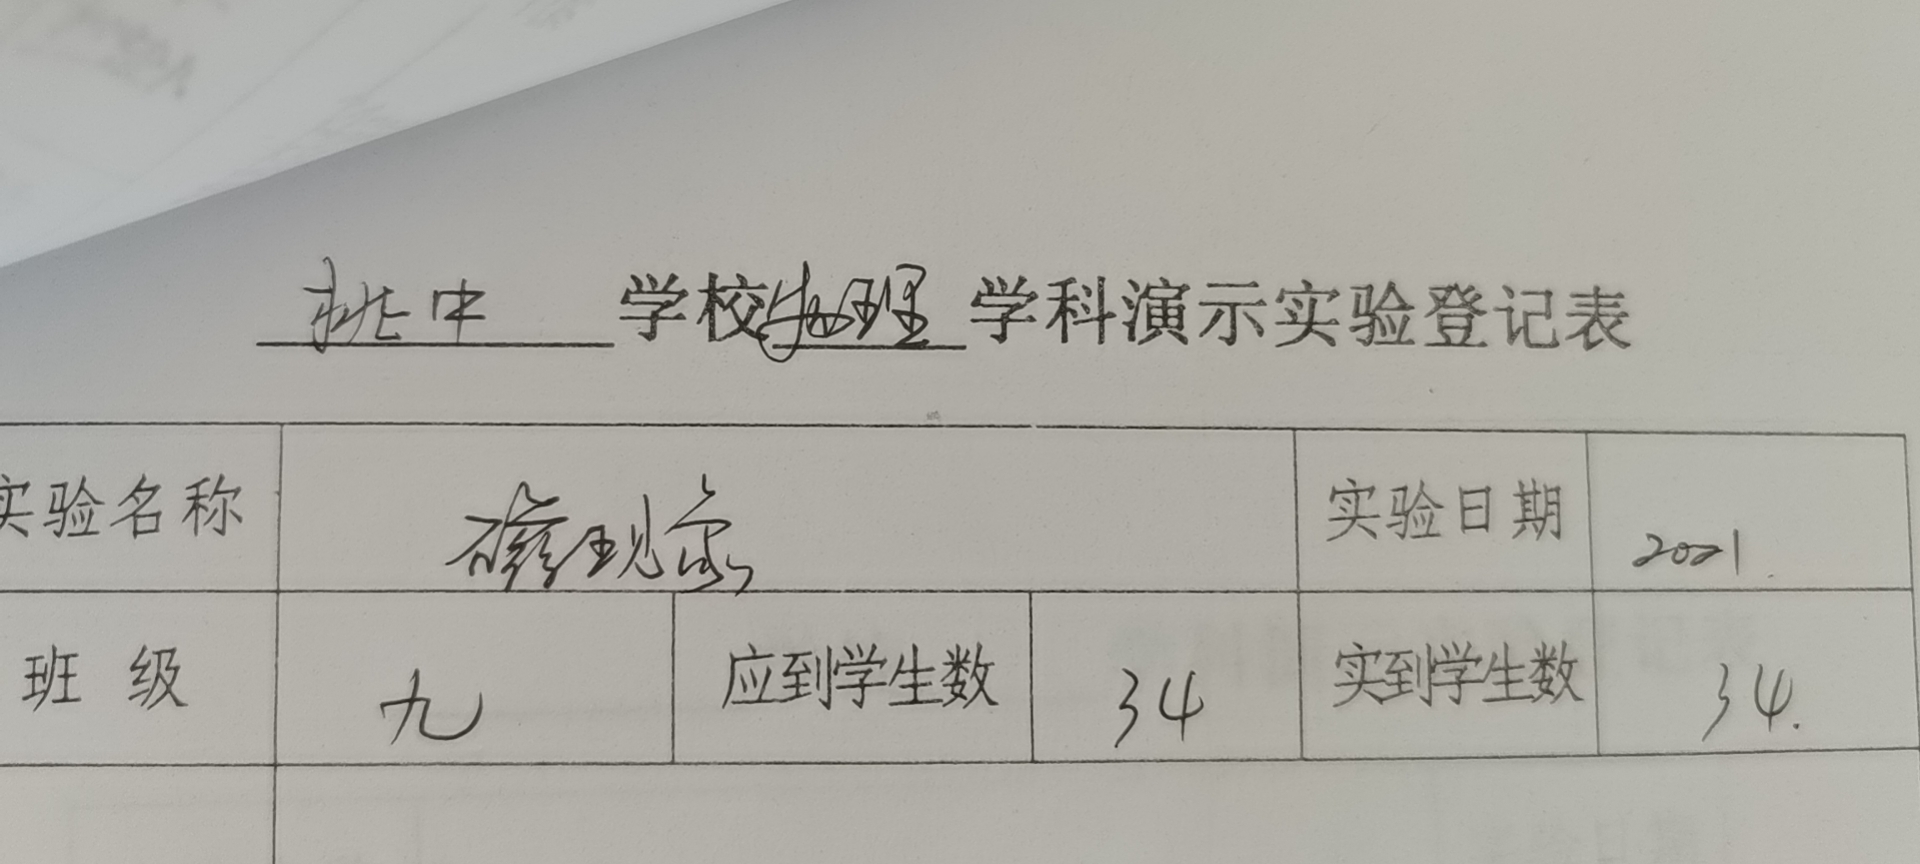 桃中 学校物理学科演示实验登记表
实验名称 磁现象 实验日期 2021.
班 级 九 应到学生数 34 实到学生数 34.